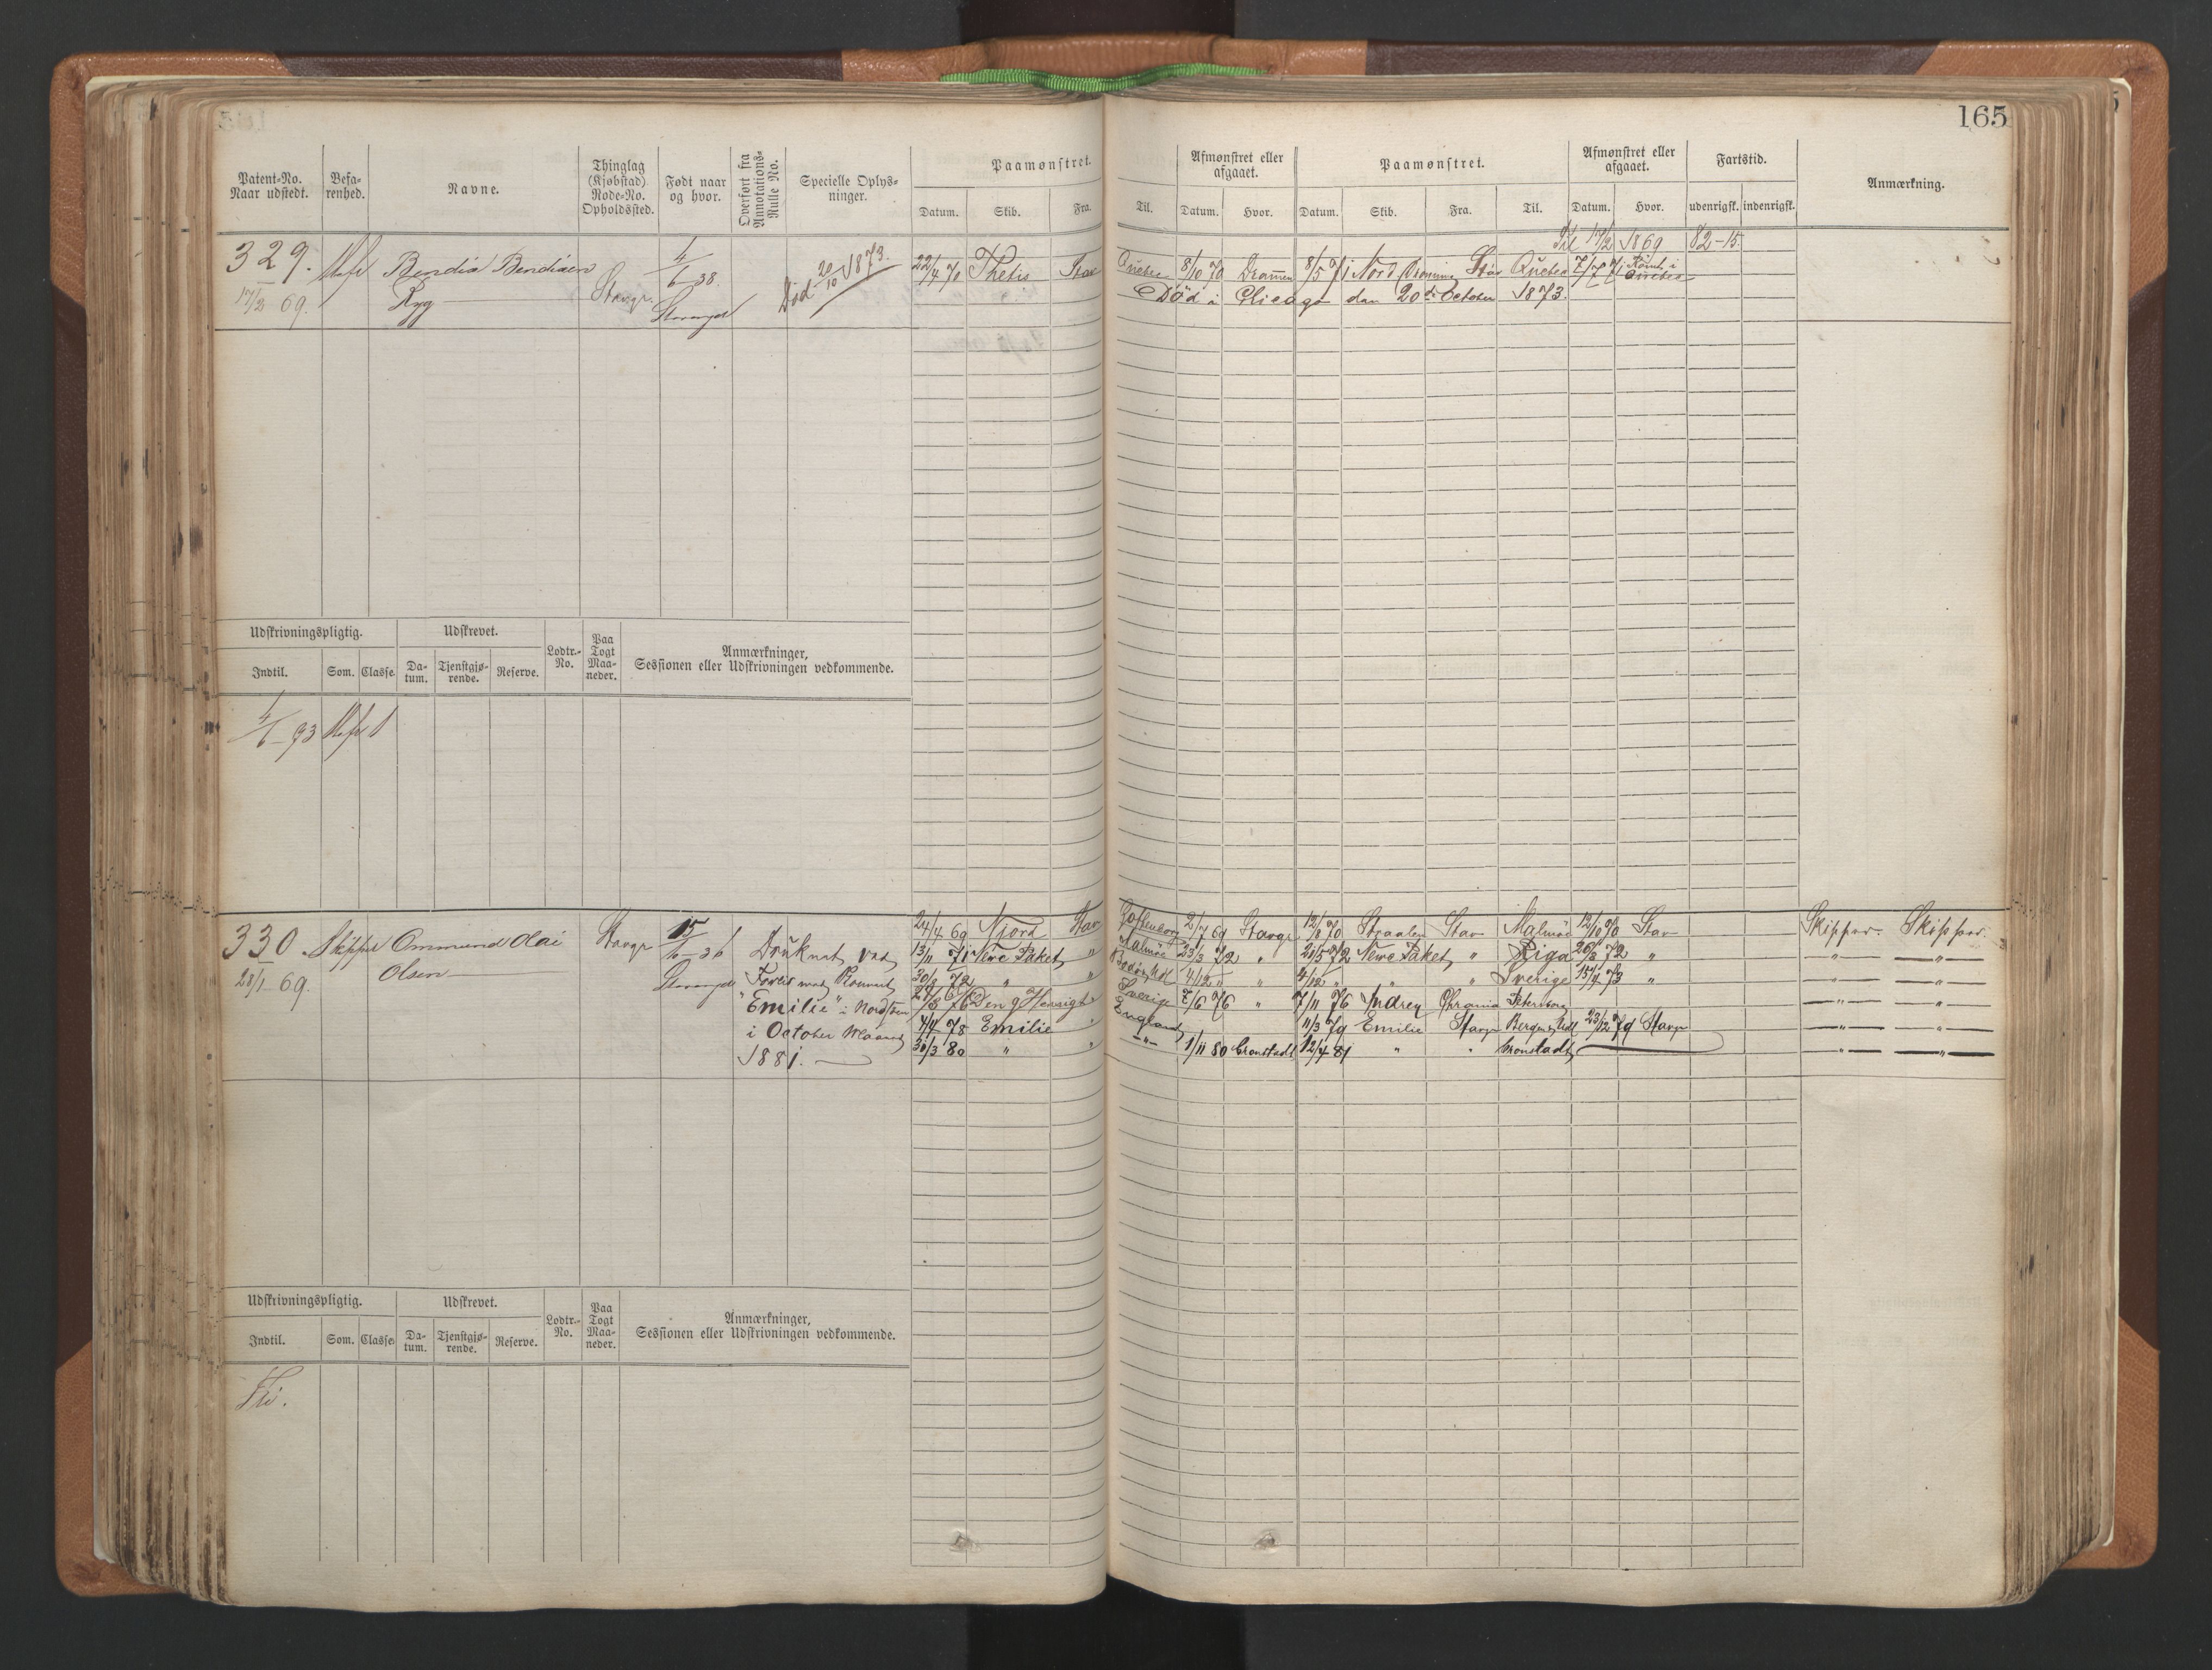 165
Patent-No. Naar udstedt.
Befarenhed.
Navne.
Thinglag (Kjøbstad) Rode-No. Opholdssted.
Født naar og hvor.
Overført fra Annotations-Rulle No.
Specielle Oplysninger.
Paamønstret.
Datum. Skib. Fra. Til.
Afmønstret eller afgaaet.
Datum. Hvor.
Paamønstret.
Datum. Skib. Fra. Til.
Afmønstret eller afgaaet.
Datum. Hvor.
Fartstid.
udenrigsk. indenrigsk.
Anmærkning.
Til 17/2 1869 82-15.
329. Bendix Bendixen Stavgr. 4/6-38. Død 20/10 1873.
17/2 69. Ryg Stavanger
22/4 70 Thetis Stav Quebec 8/10 70 Drammen 8/5 71 Nord Stav Quebec 7/7 71 Rømt i Quebec
Død i Chicago den 20de October 1873.
Udskrivningspligtig.
Indtil. Som. Classe.
Udskrevet.
Datum. Tjenstgjørende. Reserve.
Lodtr.-No.
Paa Togt Maaneder.
Anmærkninger, Sessionen eller Udskrivningen vedkommende.
93 1
330. Skipper Ommund Olai Stavgr 15/6-36
28/1 69. Olsen Stavanger
Druknet ved
Forlis med
"Emilie" i Nordsøen
i October Maaned
1881.
24/4 69 Njord Stav Gothenborg 2/7 69 Stavgr 12/8 70 Straalen Stav Malmøe 12/10 70 Stav Skipper. Skipper.
13/11 71 Newe Paket " Malmöe 23/3 72 " 21/5 72 Newe Paket " Riga 26/8 72 " -"- -"-
30/8 72 " " 4/12 " " 4/12 " " " Sverige 15/9 73 " -"- -"-
76 Sverige 7/6 76 " 7/11 76 Andrea Petersborg -"- -"-
4/4 78 Emilie " England 11/3 79 Emilie Stavgr 23/12 79 Stavgr -"- -"-
31/3 80 " " -"- 1/11 80 Cronstadt 12/4 81 " " Cronstadt -"- -"-
Udskrivningspligtig.
Indtil. Som. Classe.
Udskrevet.
Datum. Tjenstgjørende. Reserve.
Lodtr.-No.
Paa Togt Maaneder.
Anmærkninger, Sessionen eller Udskrivningen vedkommende.
Fri.